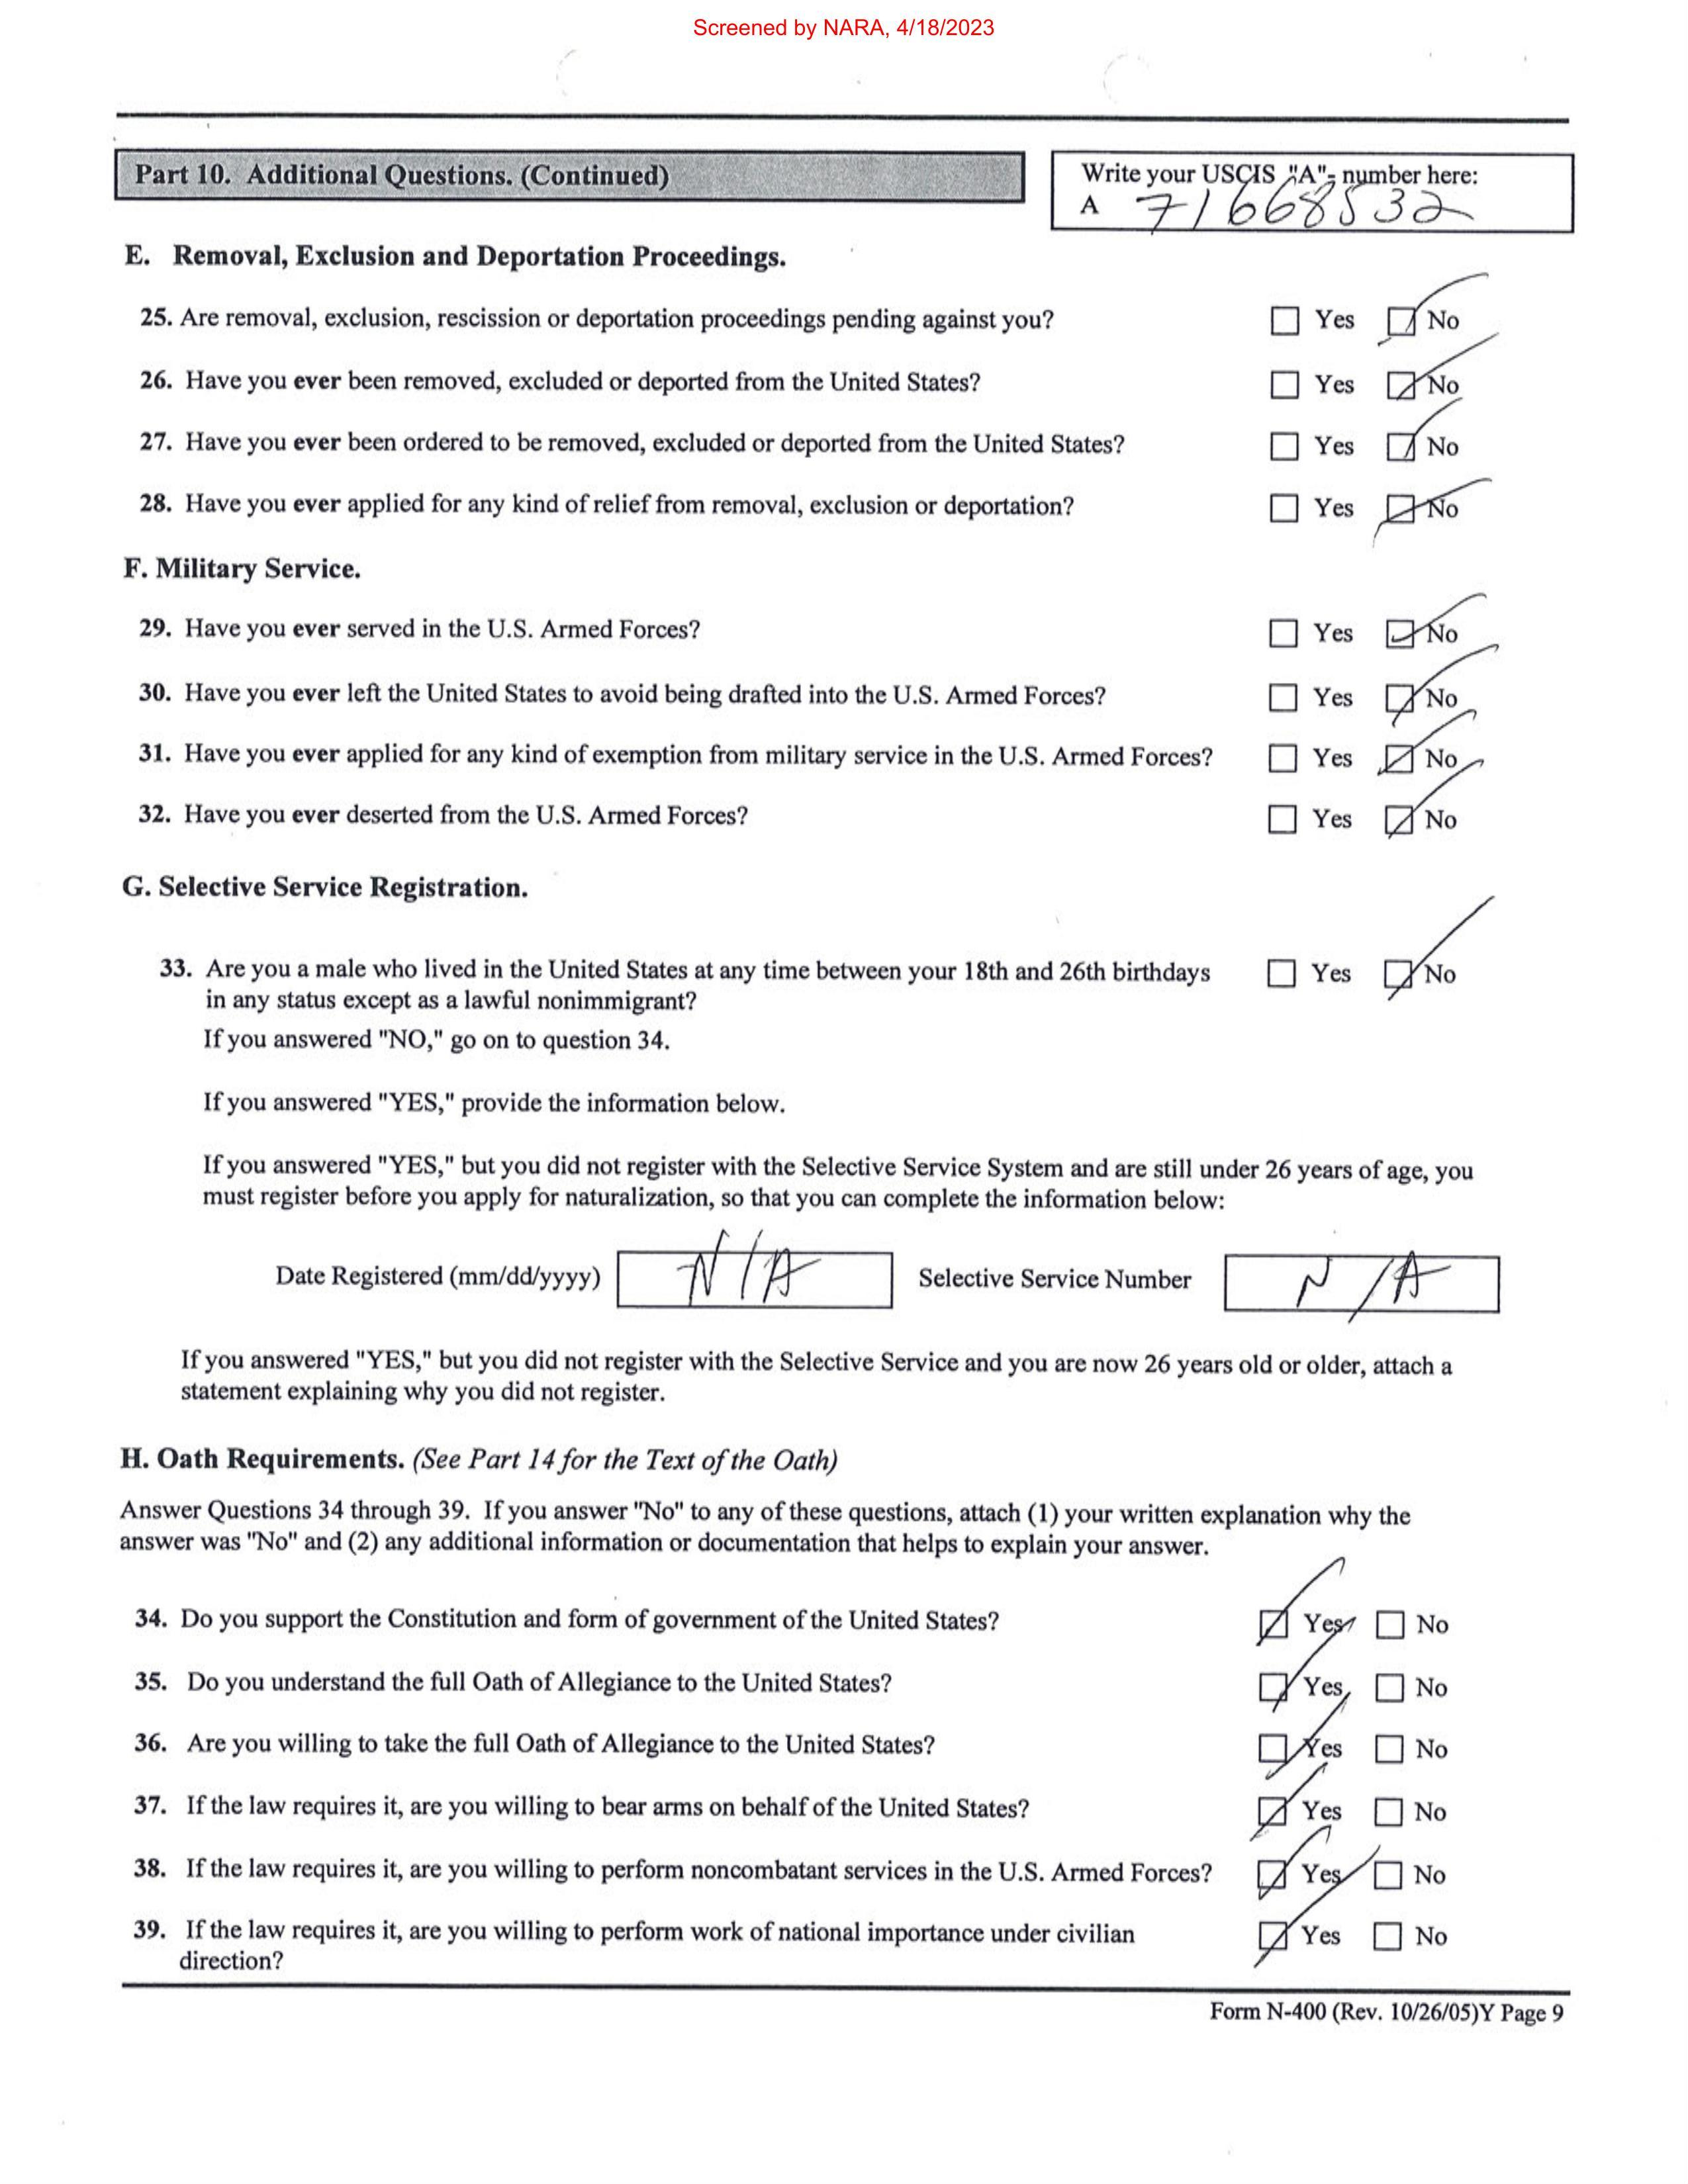 Screened by NARA, 4/18/2023
Part 10. Additional Questions. (Continued)
Write your USCIS "A"- number here:
A 71668532
E. Removal, Exclusion and Deportation Proceedings.
25. Are removal, exclusion, rescission or deportation proceedings pending against you? Yes No
26. Have you ever been removed, excluded or deported from the United States? Yes No
27. Have you ever been ordered to be removed, excluded or deported from the United States? Yes No
28. Have you ever applied for any kind of relief from removal, exclusion or deportation? Yes No
F. Military Service.
29. Have you ever served in the U.S. Armed Forces? Yes No
30. Have you ever left the United States to avoid being drafted into the U.S. Armed Forces? Yes No
31. Have you ever applied for any kind of exemption from military service in the U.S. Armed Forces? Yes No
32. Have you ever deserted from the U.S. Armed Forces? Yes No
G. Selective Service Registration.
33. Are you a male who lived in the United States at any time between your 18th and 26th birthdays Yes No
in any status except as a lawful nonimmigrant?
If you answered "NO," go on to question 34.
If you answered "YES," provide the information below.
If you answered "YES," but you did not register with the Selective Service System and are still under 26 years of age, you
must register before you apply for naturalization, so that you can complete the information below:
Date Registered (mm/dd/yyyy) N/A Selective Service Number N/A
If you answered "YES," but you did not register with the Selective Service and you are now 26 years old or older, attach a
statement explaining why you did not register.
H. Oath Requirements. (See Part 14 for the Text of the Oath)
Answer Questions 34 through 39. If you answer "No" to any of these questions, attach (1) your written explanation why the
answer was "No" and (2) any additional information or documentation that helps to explain your answer.
34. Do you support the Constitution and form of government of the United States? Yes No
35. Do you understand the full Oath of Allegiance to the United States? Yes No
36. Are you willing to take the full Oath of Allegiance to the United States? Yes No
37. If the law requires it, are you willing to bear arms on behalf of the United States? Yes No
38. If the law requires it, are you willing to perform noncombatant services in the U.S. Armed Forces? Yes No
39. If the law requires it, are you willing to perform work of national importance under civilian Yes No
direction?
Form N-400 (Rev. 10/26/05)Y Page 9